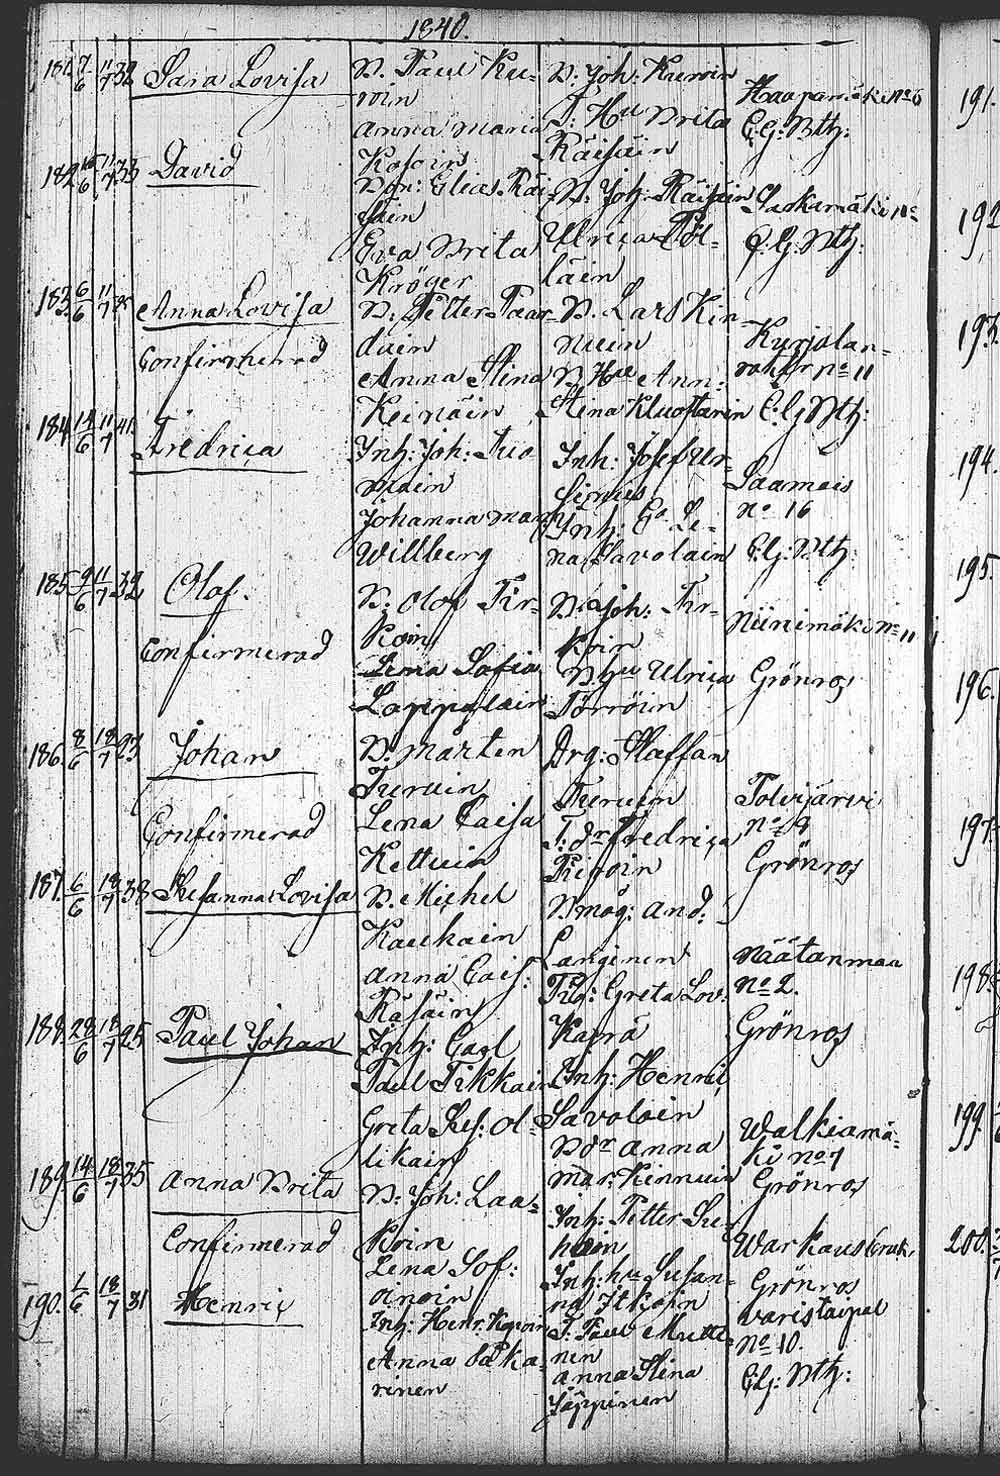 1840.
181. 7/6 11/7 32 Sara Lovisa
B. Paul Ku-
roin
Anna Maria
Kosoin
B. Joh: Kuroin
T. Hu Brita
Räisäin
Haapamäki No 6
C: G: Bth:
182 11/7 33 David
Bon: Elias Räi
säin
Eva Brita
Kröger
B. Joh. Räisäin
Ulrica Pöl-
läin
Saskamäki No
C. G. Bth:
183 6/6 11/7 Anna Lovisa
Confirmerad
B. Petter Paar-
duin
Anna Stina
Keinäin
B. Lars Kin
nuin
B. Hu Ann:
Stina Kluostarin
Kurjalan-
No 11
C: G Bth:
184 14/6 11/7 41. Fredrica
Inh: Joh: Tuo
main
Johanna Mar
Willberg
Inh: Josef Ur-
sinus
Inh: Ea Le-
na Savolain
Saamais
No 16
C: G: Bth:
185 9/6 11/7 32 Olof.
Confirmerad
B: Olof Tir-
Koin
Lena Sofia
Lappalain
B. Joh: Tir-
Koin
B. hu Ulrica
Törröin
Niinimäki No 11
Grönros
186. 8/6 18/7 23 Johan
Confirmerad
B. Mårten
Turuin
Lena Caisa
Kettuin
Drg: Staffan
Turuin
T: dr Fredrica
Piiroin
Tolvijärvi
No 9
Grönros
187. 6/6 18/7 38 Susanna Lovisa
B. Michel
Kaukain
Anna Cais:
Räsäin
Bmåg: And:
Langinen
Pig: Greta Lov:
Karjä
Näätänmaa
No 2.
Grönros
188. 28/6 18/7 25 Paul Johan
Inh: Carl
Paul Tikkain
Greta Sus: Ol-
likain
Inh: Henric
Savolain
Bdr Anna
Mar: Kinnuin
Walkiamä-
ki No 7
Grönros
189. 14/6 18/7 35 Anna Brita
Confirmerad
B: Joh: Laa-
Koin
Lena Sof:
oinoin
Inh: Petter Su-
hoin
Inh: hu Susan-
na Itkoin
Warkaus bruk,
Grönros
190. 1/6 18/7 31 Henric
Inh: Henr. Kopoin
Anna
rinen
T. Paul Mutti-
nen
Anna Stina
Jäppinen
Varistaipal
No 10.
C: G: Bth:
191.
192
193.
194.
195.
196.
197.
198.
199.
200.